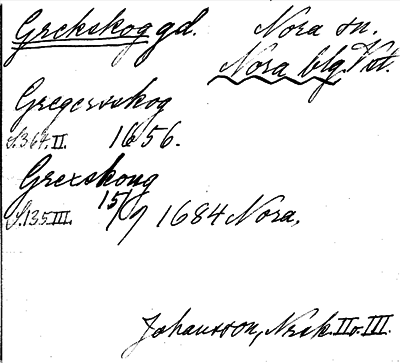 Grekskog gd. Nora sn.
Nora blg Vst.
Gregersskog
S. 367. II. 1656.
Grexskoug
S. 135 III. 15/7 1684 Nora,
Johansson, Nrsk. II o. III.